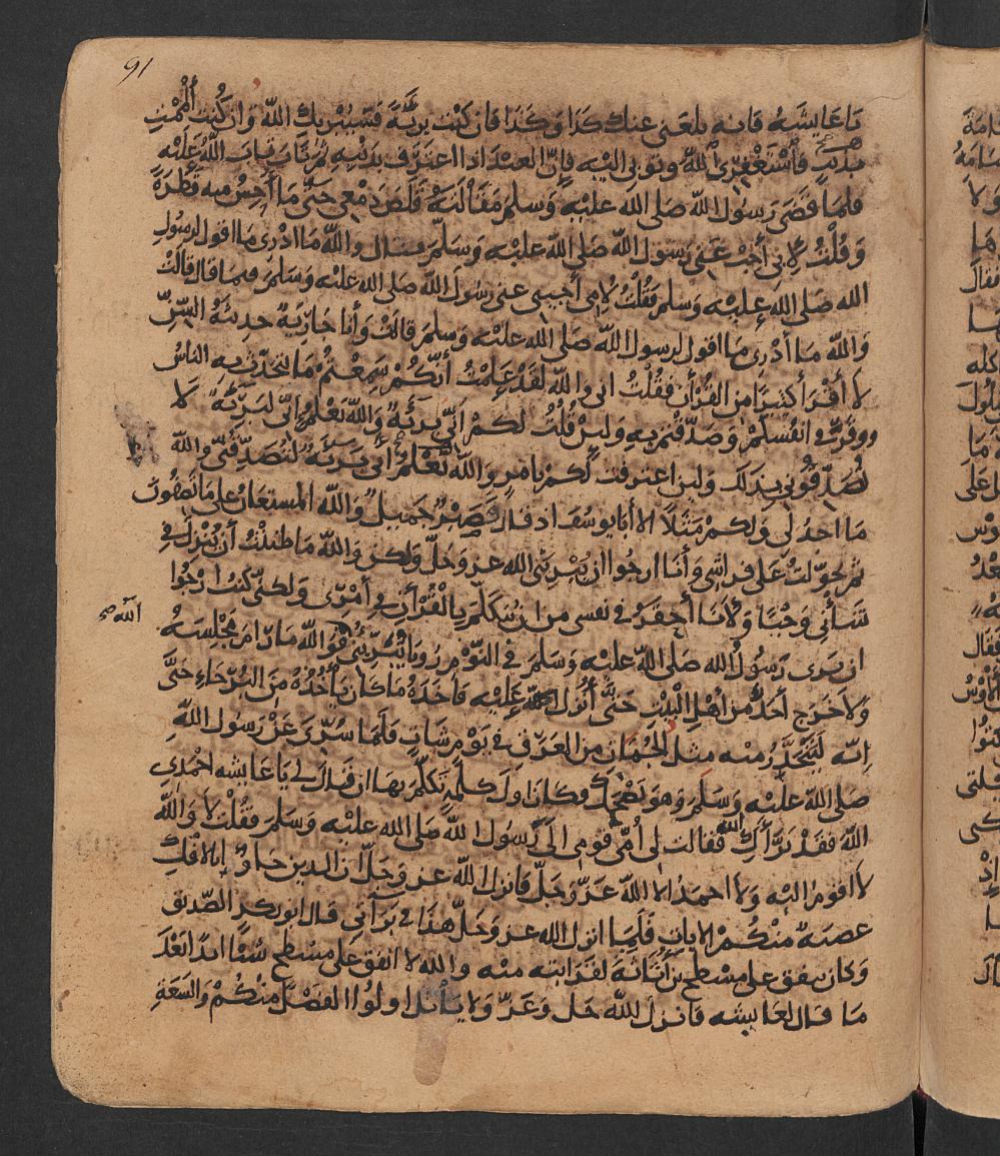 91
يا عايشه فانه بلغنى عنك كذا وكذا فان كنت بريّة فسيبريك الله وان كُنتِ أَلْممْتِ
بذنب فأستغفري الله وتوبي اليه فإنّ العبد اذا اعترف بذنبه ثم تاب تاب الله عَلَيْه
فلما قضى رسول الله صلى الله عليه وسلم مقالته قلص دمعي حتى ما أُحِسُّ منه قَطْرَةً
وقلت لأبي أجب عني رسول الله صلى الله عليه وسلم فيما قال والله ما ادري ما اقول لرسول
الله صلى الله عليه وسلم فقلت لامي أجيبي عنى رسول الله صلى الله عليه وسلم فيما قال قالت
والله ما أدري ما اقول لرسول الله صلى الله عليه وسلم قالت وأنا جارية حديثة السنّ
لا أقرأ كثيرا من القرأن فقلت انى والله لقد علمت أنكم سمعتم ما يتحدّث به الناس
ووقر في انفسكم وصدقتم به ولين قلت لكم انّي بريئة والله يعلم إنّي لبريّة لا
تُصدّقُوني بذلك ولين اعترفت لكم بامرٍ والله يعلم أني بريّة لتصدقُنّي والله
ما اجد لى ولكم مثلا الا أبا يوسف اذ قال فصبر جميل والله المستعان على ما تصفون
ثم تحوّلت على فراشي وأنا ارجوا ان يبريني الله عز وجل ولكن والله ما ظننت أن يُنزل في
شأني وحيًا ولأنا أحقر في نفسى من ان يتكلم بالقرأن في أمرى ولكنّي كنت ارجوا
ان يرى رسول الله صلى الله عليه وسلم في النوم رويا يبريني فوالله ما رام مجلسه
الله صح
ولا خرج أحد من أهل البيت حتى أُنزل عليه فأخذه ما كان يأخذه من البُرَحَاءِ حتَّى
إنّه ليتحدّر منه مثل الجُمَان من العرق في يوم شات فلما سُرّي عن رسول الله
صلى الله عليه وسلم وهو يضحك وكان اول كلمة تكلّم بها ان قال لي يا عايشه احمدى
الله فقد برّأكِ الله فقالت لى أُمّي قومى الى رسول الله صلى الله عليه وسلم فقلت لا والله
لا اقوم اليه ولا احمد الا الله عزّ وجلّ فانزل الله عز وجل ان الذين جاوُ بالافك
عصبة منكم الايات فلما انزل الله عز وجل هذا في برآتي قال ابو بكر الصّديق
وكان ينفق على مسطح بن أُثاثة لقرابته منه والله لا انفق على مسطح شيًا ابدًا بَعْدَ
ما قال لعايشه فانزل الله جل وعزّ ولا يأتل اولُوا الفضل منكم والسَّعَةِ